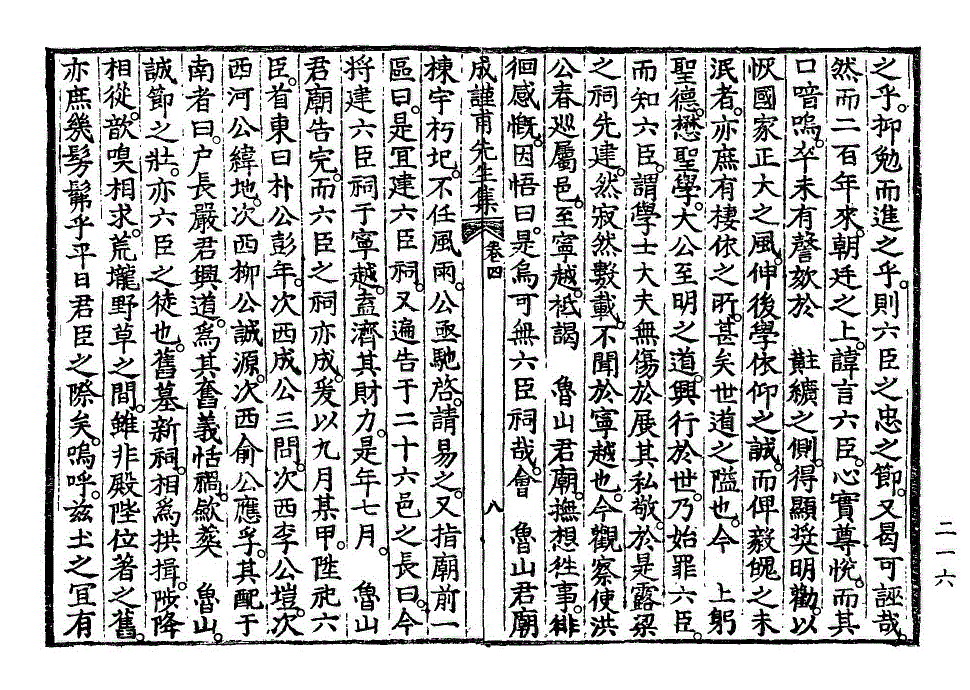 之乎。抑勉而進之乎。則六臣之忠之節。又曷可誣哉。
然而二百年來。朝廷之上。諱言六臣。心實尊悅。而其
口喑嗚。卒未有謦欬於　黈纊之側。得顯奬明勸。以
恢國家正大之風。伸後學依仰之誠。而俾毅魄之未
泯者。亦庶有棲依之所。甚矣世道之隘也。今　上躬
聖德。懋聖學。大公至明之道。興行於世。乃始罪六臣。
而知六臣。謂學士大夫無傷於展其私敬。於是露梁
之祠先建。然寂然數載。不聞於寧越也。今觀察使洪
公春巡屬邑。至寧越。祗謁　魯山君廟。撫想徃事。徘
徊感慨。因悟曰。是烏可無六臣祠哉。會　魯山君廟
成謹甫先生集　卷四　八
棟宇朽圮。不任風雨。公亟馳啓。請易之。又指廟前一
區曰。是宜建六臣祠。又遍告于二十六邑之長曰。今
將建六臣祠于寧越。盍濟其財力。是年七月。　魯山
君廟告完。而六臣之祠亦成。爰以九月某甲。陞祀六
臣。首東曰朴公彭年。次西成公三問。次西李公塏。次
西河公緯地。次西柳公誠源。次西俞公應孚。其配于
南者曰。户長嚴君興道。爲其奮義恬禍。斂葬　魯山。
誠節之壯。亦六臣之徒也。舊墓新祠。相爲拱揖。陟降
相從。歆嗅相求。荒壠野草之間。雖非殿陛位著之舊。
亦庶幾髣髴乎平日君臣之際矣。嗚呼。玆土之宜有
二一六